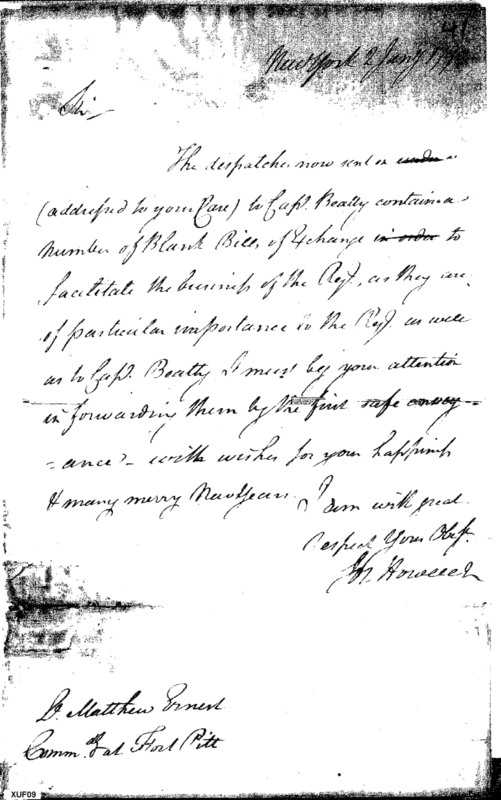 New York 2 Jany
Sir
The despatches now sent on under
(addressed to your Care) to Capt. Beatty contain a
number of Blank Bills of Exchange in order to
facilitate the business of the Regt. as they are
of particular importance to the Regt. as well
as to Capt. Beatty I must beg your attention
in forwarding them by the first safe convey-
-ance - with wishes for your happiness
& many merry New Years. I am with great
Respect Your Obst.
Howell
Lt. Matthew Ernest
Commdg at Fort Pitt
XUF09